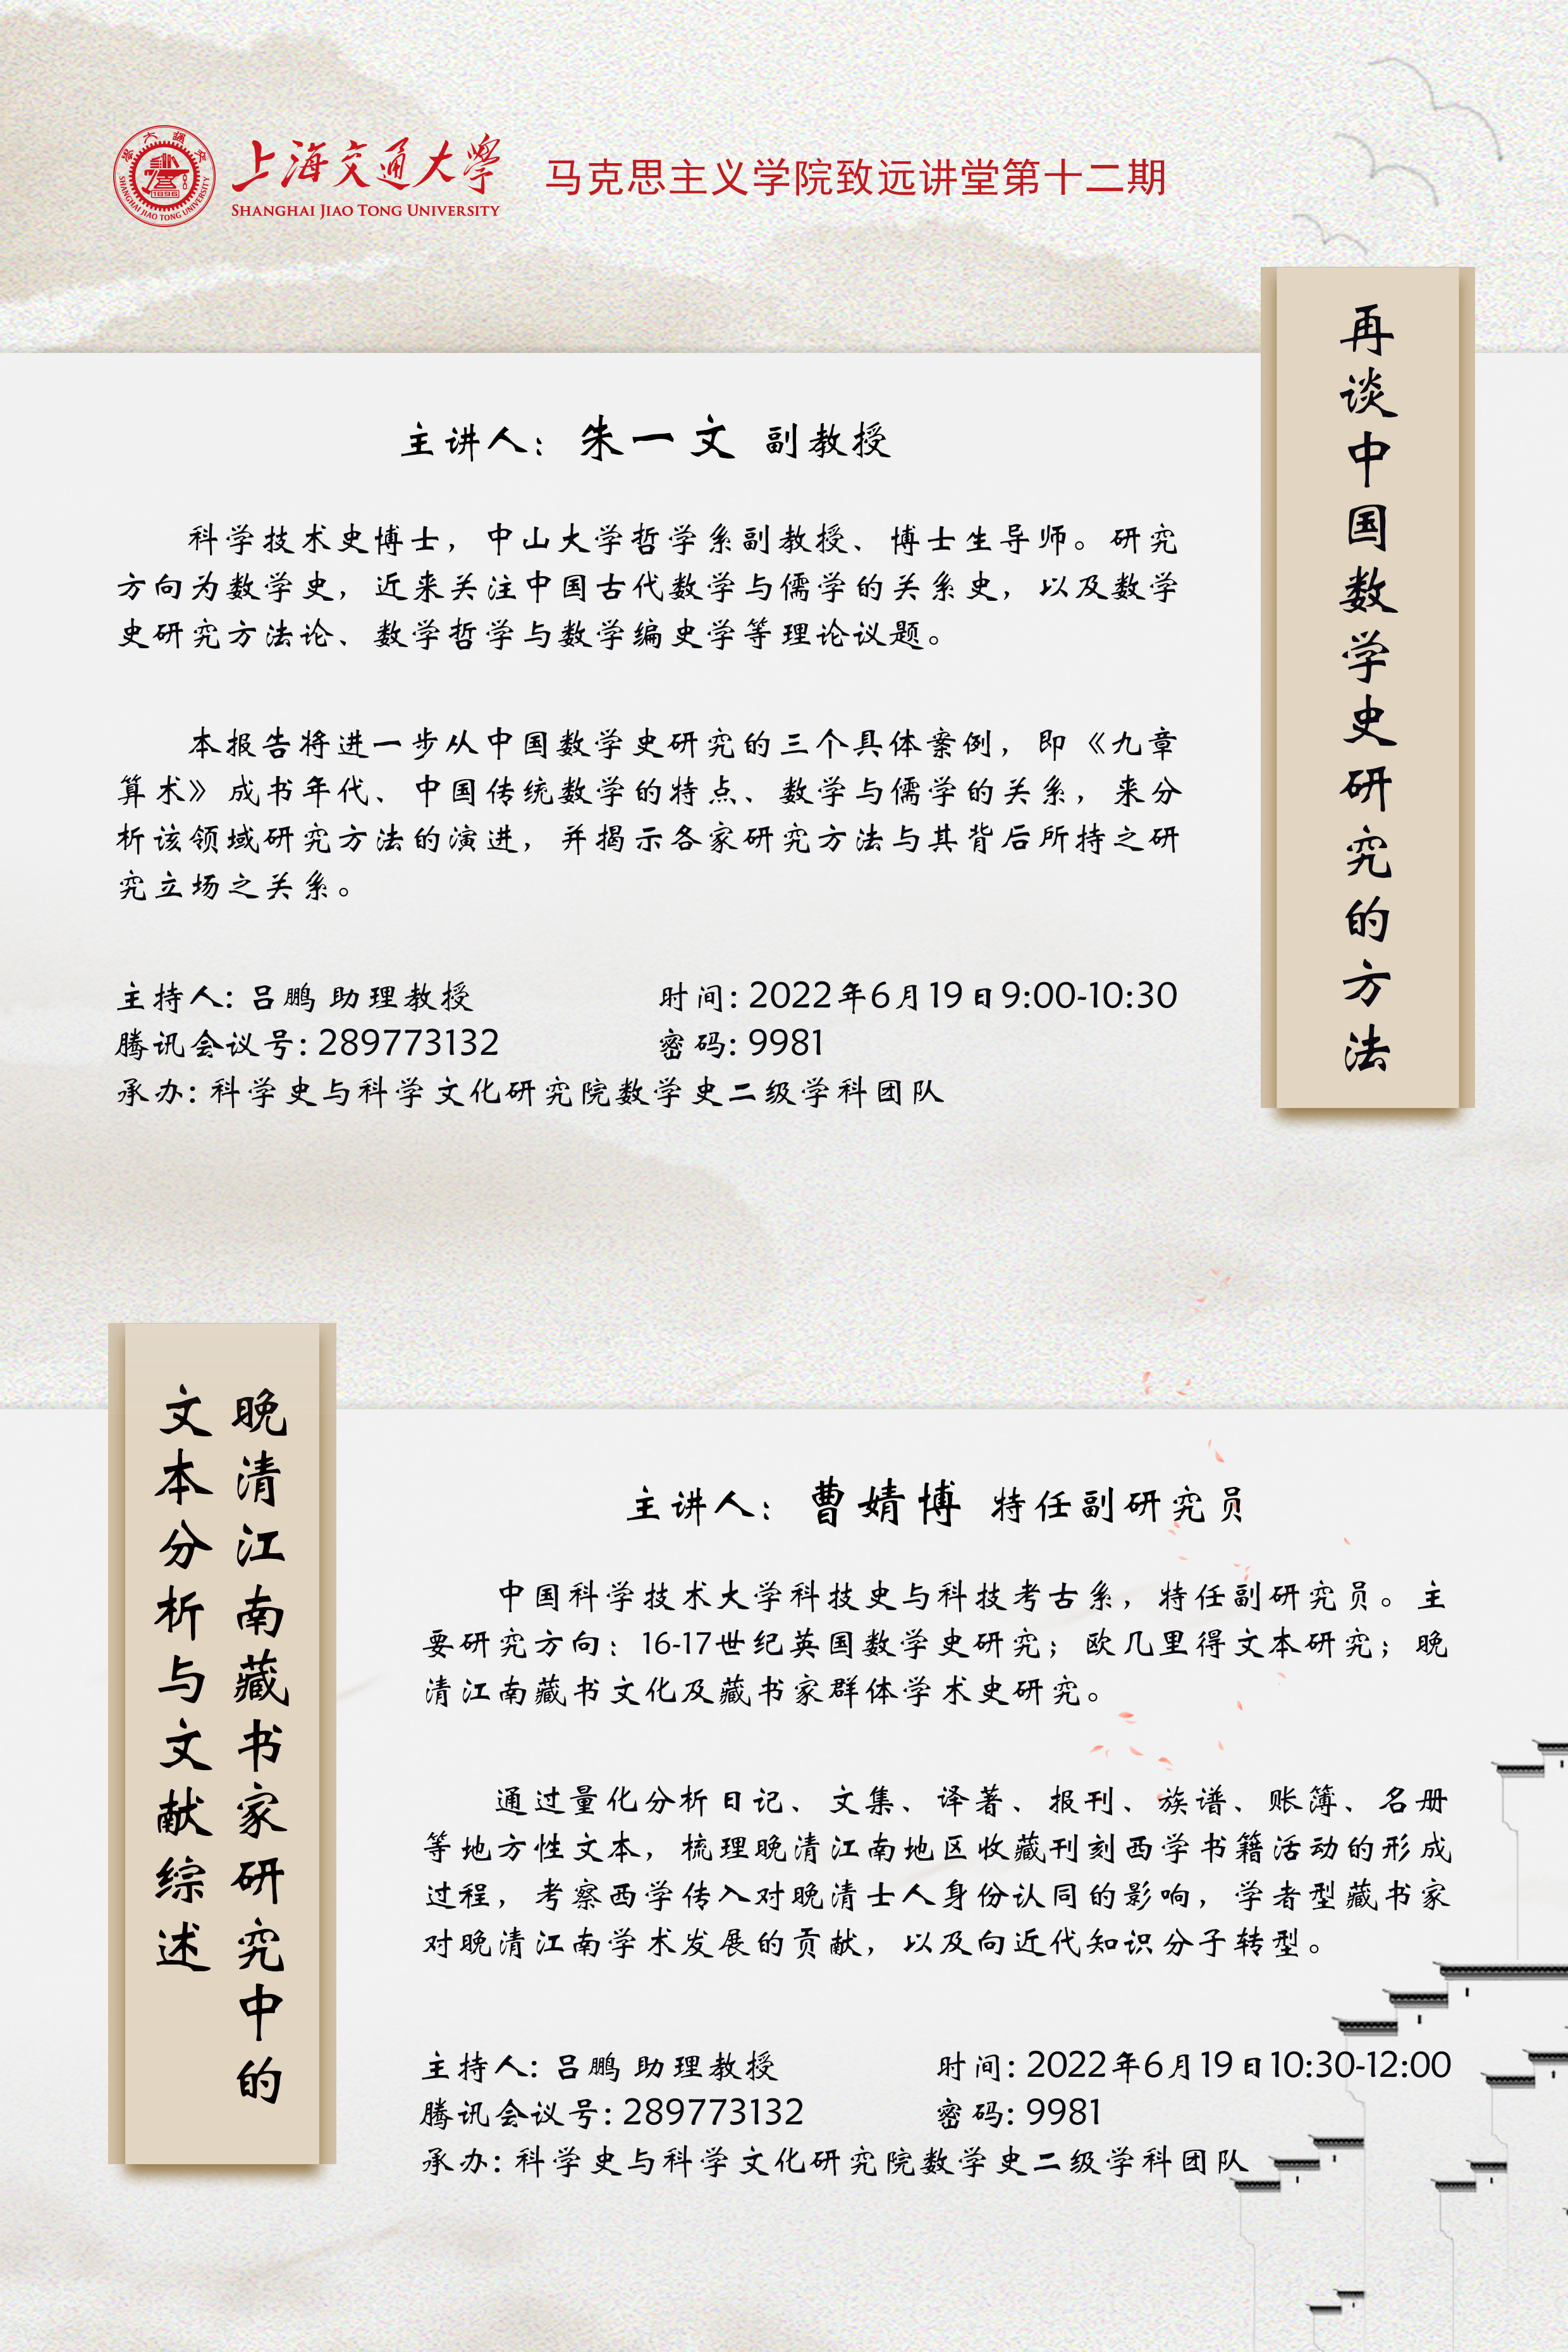 上海交通大學
SHANGHAI JIAO TONG UNIVERSITY
马克思主义学院致远讲堂第十二期
再谈中国数学史研究的方法
主讲人：朱一文 副教授
科学技术史博士，中山大学哲学系副教授、博士生导师。研究
方向为数学史，近来关注中国古代数学与儒学的关系史，以及数学
史研究方法论、数学哲学与数学编史学等理论议题。
本报告将进一步从中国数学史研究的三个具体案例，即《九章
算术》成书年代、中国传统数学的特点、数学与儒学的关系，来分
析该领域研究方法的演进，并揭示各家研究方法与其背后所持之研
究立场之关系。
主持人：吕鹏 助理教授
时间：2022年6月19日9:00-10:30
腾讯会议号：289773132
密码：9981
承办：科学史与科学文化研究院数学史二级学科团队
晚清江南藏书家研究中的
文本分析与文献综述
主讲人：曹婧博 特任副研究员
中国科学技术大学科技史与科技考古系，特任副研究员。主
要研究方向：16-17世纪英国数学史研究；欧几里得文本研究；晚
清江南藏书文化及藏书家群体学术史研究。
通过量化分析日记、文集、译著、报刊、族谱、账簿、名册
等地方性文本，梳理晚清江南地区收藏刊刻西学书籍活动的形成
过程，考察西学传入对晚清士人身份认同的影响，学者型藏书家
对晚清江南学术发展的贡献，以及向近代知识分子转型。
主持人：吕鹏 助理教授
时间：2022年6月19日10:30-12:00
腾讯会议号：289773132
密码：9981
承办：科学史与科学文化研究院数学史二级学科团队